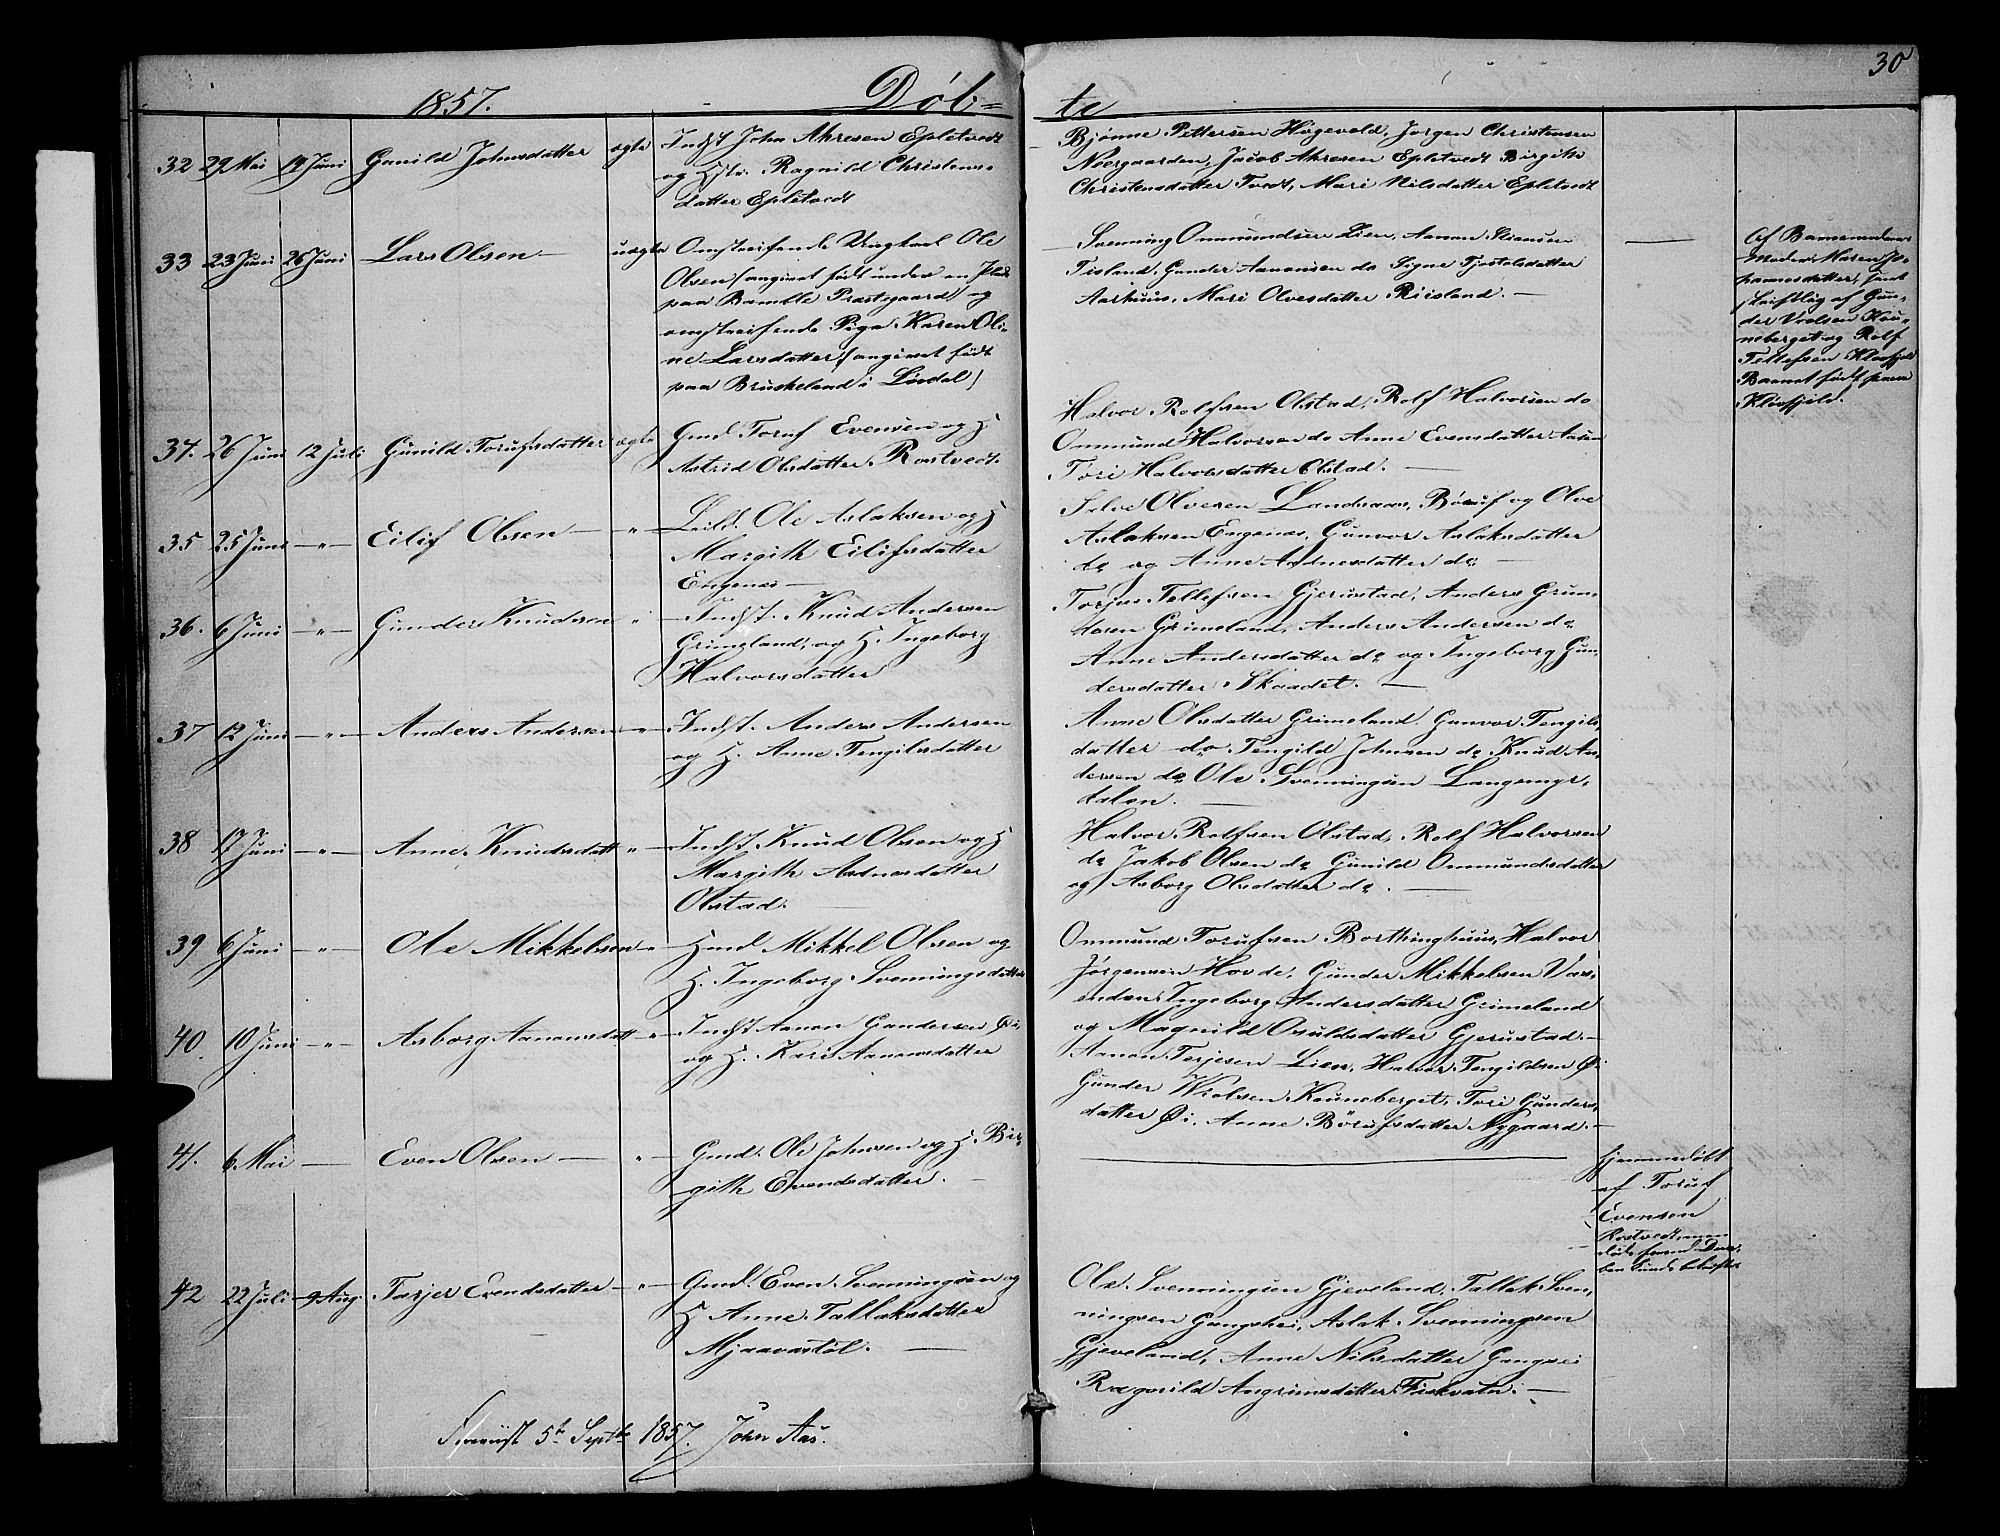 30
1857. Döb= te
32 29 Mai 14 Juni Gunild Johnsdatter ægte Indst John Akresen Epletvedt
og Hstr. Ragnild Christens-
datter Epletvedt
Bjønne Pettersen Högevold, Jørgen Christensen
Noergaarden, Jacob Akresen Epletvedt Birgithe
Christensdatter Tvedt, Mari Nilsdatter Epletvedt
33 23 Juni 26 Juni Lars Olsen uægte Omstreifende Ungkarl Ole
Olsen (angivet født under en Plads
paa Bamble Præstegaard) og
omstreifende Pige Karen Oli-
ne Larsdatter (angivet født
paa Bruskeland i Lindal)
Svenning Ommundsen Lien, Aanon
Fisland, Gunder Aanonsen do Signe Tjostolsdatter
Aarhuus, Mari Olvesdatter Riisland. —
Af
Moder, Maren
datter,
skriftlig af Gun-
der Vrolsen Kou-
neberget og Rolf
Tellefsen Klovfjeld
Barnet født paa
Klovfjeld.
34. 26 Juni 12 Juli Gunild Torufsdatter ægte Gmd Toruf Evensen og H
Astrid Olsdatter Rostvedt.
Halvor Rolfsen Olstad, Rolf Halvorsen do
Ommund Halvorsen do Anne Evensdatter Aasen
Tori Halvorsdatter Olstad. —
35 25 Juni —"— Eilif Olsen — " — Leild. Ole Aslaksen og H
Margith Eilifsdatter
Engenes —
Selve Olvesen Landsaas, Böruf og Olve
Aslaksen Engenæs, Gunvor Aslaksdatter
do og Anne Adnesdatter do. —
36. 6 Juni —"— Gunder Knudsen " — Indst. Knud Andersen
Grimeland, og H. Ingeborg
Halvorsdatter
Torjus Tellefsen Gjerustad, Anders Gun-
dersen Grimeland, Anders Andersen do
Anne Andersdatter do og Ingeborg Gun-
dersdatter Skaadet. —
37 12 Juni —"— Anders Andersen —"— Indst. Anders Andersen
og H. Anne Tengilsdatter
Anne Olsdatter Grimeland. Gunvor Tengils-
datter do. Tengild Johnsen do Knud An-
dersen do Ole Svenningsen Langemyr-
dalen. —
38 17 Juni —"— Anne Knudsdatt " — Indst. Knud Olsen og H
Margith Adnesdatter
Olstad. —
Halvor Rolfsen Olstad, Rolf Halvorsen
do Jakob Olsen do Gunild Ommundsdatter
og Asborg Olsdatter do. —
39 6 Juni —"— Ole Mikkelsen " — Hmd Mikkel Olsen og
H. Ingeborg Svenningsdatter
Ommund Torufsen Borthinghuus, Halvor
Jørgensen Hovde, Gunder Mikkelsen Vas-
enden Ingeborg Andersdatter Grimeland
og Magnild Osuldsdatter Gjerustad. —
40. 10 Juni —"— Asborg Aanonsdatt —"— Indst Aanon Gundersen Øi,
og H. Kari Aanonsdatter
Aanon Terjesen Lien, Halvor Tengildsen Øi
Gunder Wrolsen Kouneberget, Tori Gunders-
datter Øi, Anne Börufsdatter Nygaard. —
41. 6 Mai — Even Olsen — " — Gmd. Ole Johnsen og H. Bir-
gith Evendsdatter. —
hjemmedöbt
af Toruf
Evensen
Rostvedt, men
42 22 Juli 9 Aug. Tarjer Evendsdatter —"— Gmd. Even Svenningsen og
H Anne Tallaksdatter
Mjaavastöl. —
Ole Svenningsen Gjeveland, Tallak Sven-
ningsen Gangshei, Aslak Svenningsen
Gjeveland, Anne Nilsdatter Gangsei
Ragnild Angrimsdatter Fiskvatn. —
5te Septbr 1857. John Aas.